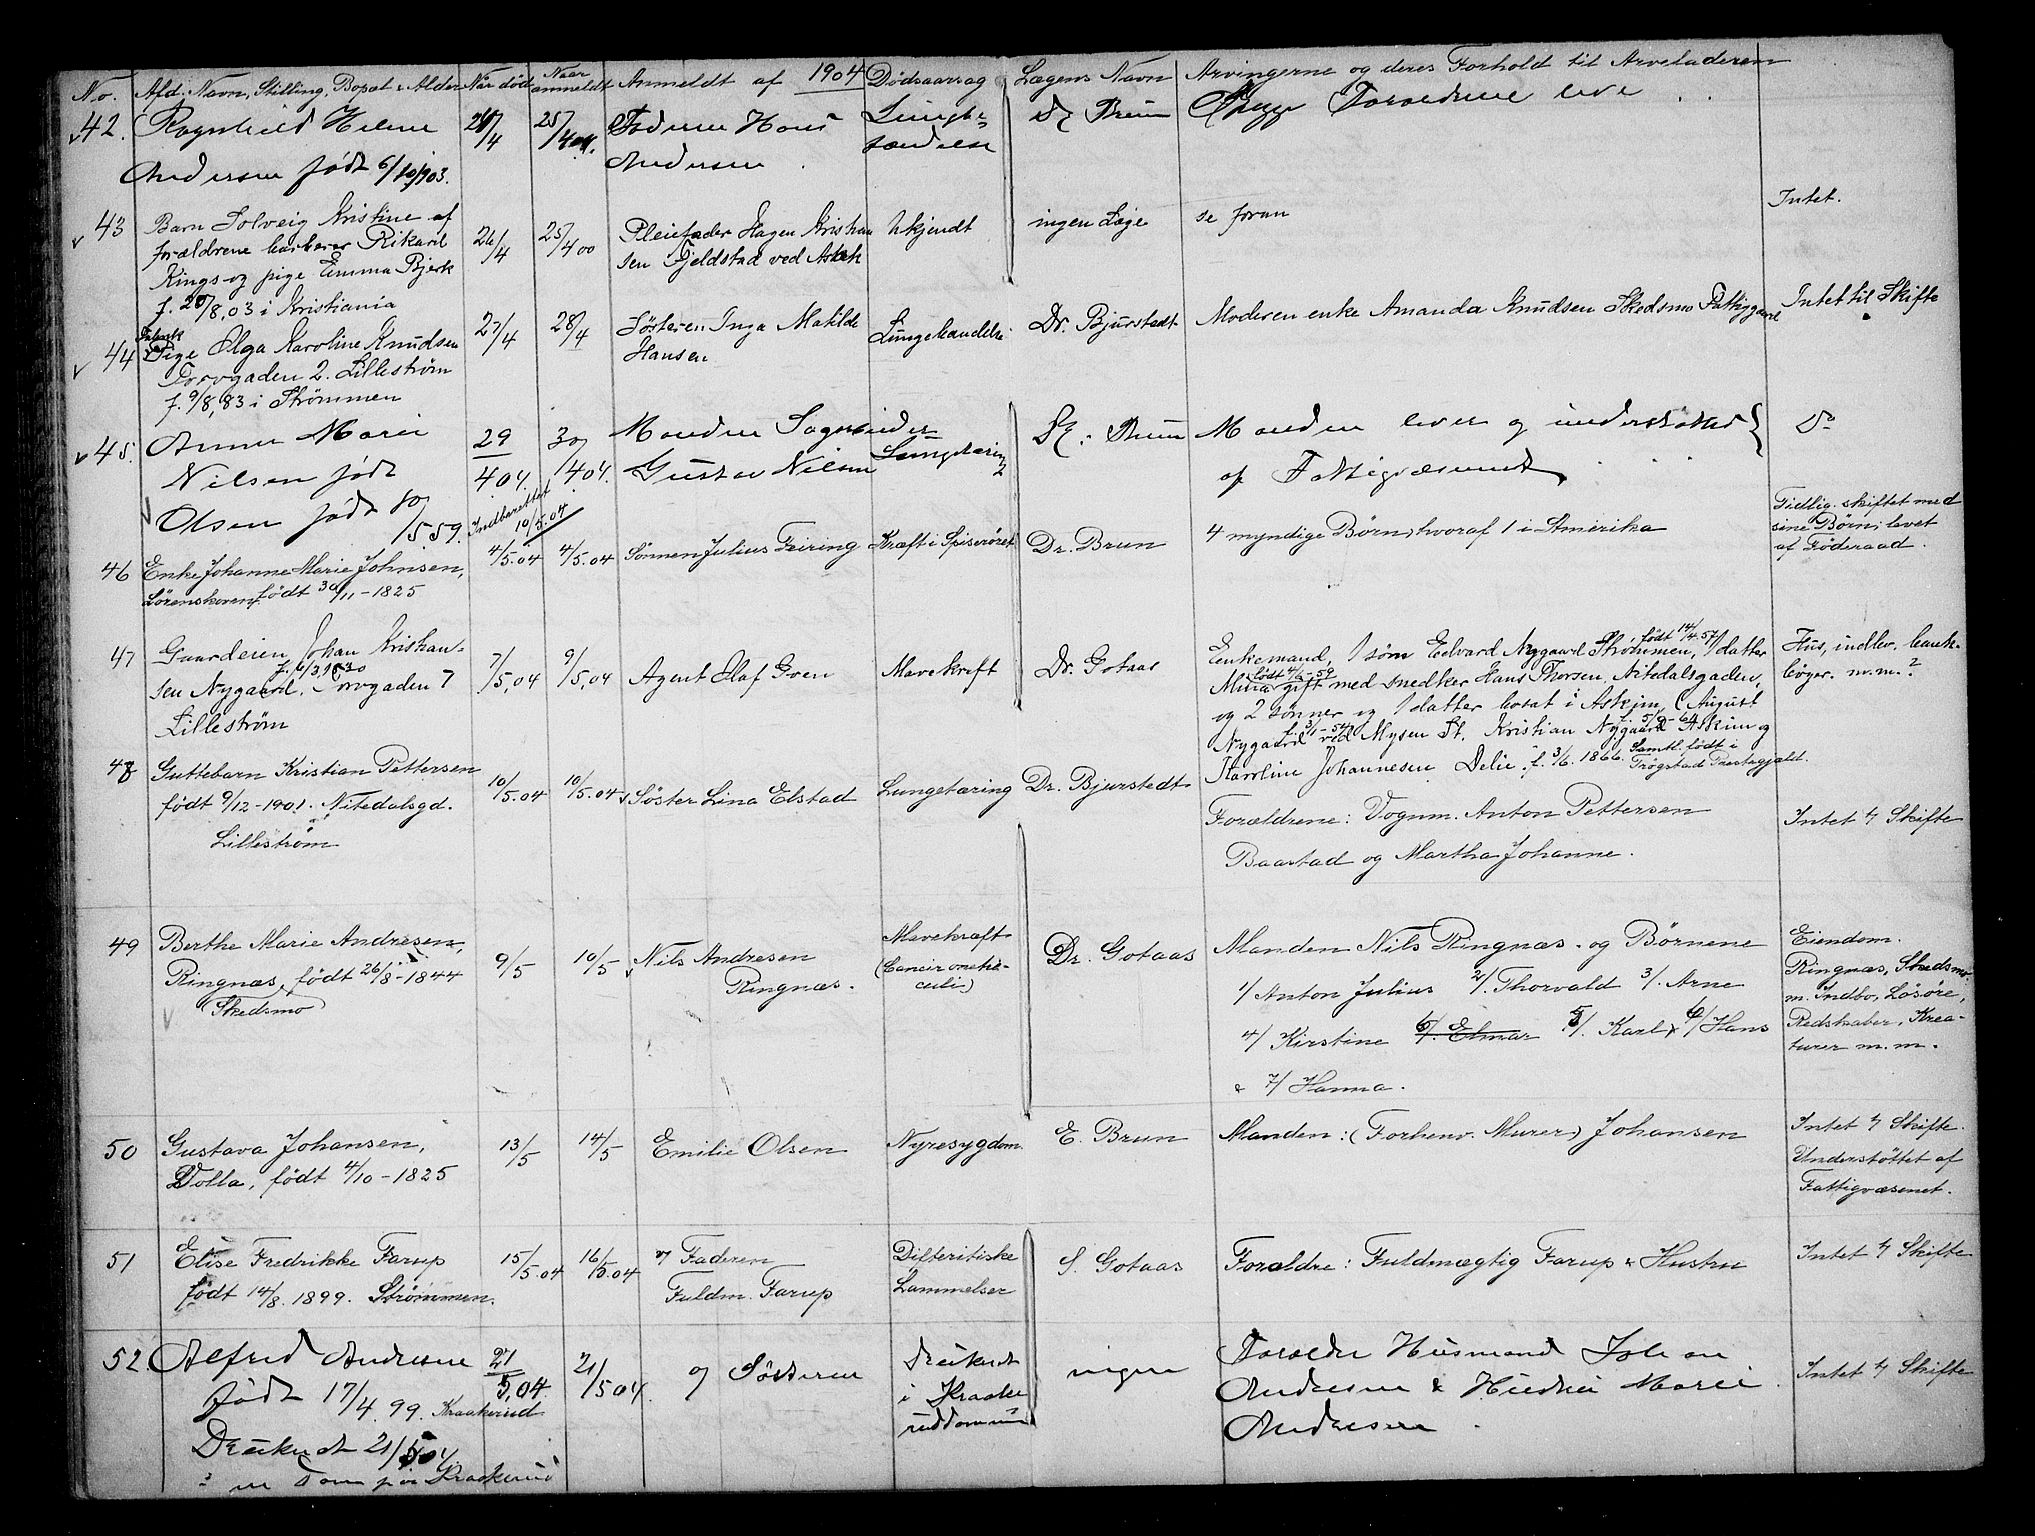 No. Afd. Navn, Stilling, Bopæl & Alder Når død Naar anmeldt Anmeldt af 1904 Dødsaarsag Lægens Navn Arvingerne og deres Forhold til Arveladeren
42. Ragnhild Helene 24/4 25/4 04. Faderen Hans Dr Brun Begge Forældrene leve
Andersen født 6/10 1903. Andersen
43 Barn Solveig Kristine af 26/4 25/4 00 Pleiefader Hagen Kristian Ukjendt ingen Læge se foran Intet.
forældrene barberer Rikard sen Fjeldstad ved Askek
Rings og pige Emma Bjerk
f. 20/8, 03 i Kristiania
44 Pige Olga Karoline Knudsen 27/4 28/4 Søsteren Inga Matilde Dr. Bjurstedt Moderen enke Amanda Knudsen Skedsmo Fattiggaard Intet til Skifte
Torvgaden 2. Lillestrøm Hansen
f. 9/8, 83 i Strømmen
45. Anne Marie 29/4 04. 30/4 04. Manden Dr. Brun Manden lever og understøttes Do
Nilsen født Gustav Nilsen Lungetæring af Fattigvæsenet
Olsen født 10/5 59. Indberettet 10/5.04
46 Enke Johanne Marie Johnsen, 4/5.04 4/5.04 Sønnen Julius Feiring Kræft i Spiserøret Dr. Brun 4 myndige Børn, hvoraf 1 i Amerika Tidlig. skiftet med
Lørenskoven født 30/11-1825 sine Børn; levet
af Føderaad.
47 Gaardeier Johan Kristian- 7/5,04 9/5,04 Agent Olaf Gren Mavekræft Dr. Gotaas Enkemand, 1 søn Edvard Nygaard Strømmen, født 14/4.57, 1 datter Hus, indlev. bank-
sen Nygaard. f. 6/3, 1830 Torvgaden 7 Mina født 4/6-59 gift med snedker Hans Thorsen, Nitedalsgaden, bøger. m.m.?
Lillestrøm og 2 sønner og 1 datter bosat i Askim, (August
Nygaard f. 3/1-54 ved Mysen St. Kristian Nygaard f. 5/9-64 Askim og
Karoline Johannesen Delie f. 3/6. 1866. Samtl. født i Trøgstad Præstegjæld.
48 Guttebarn Kristian Pettersen 10/5.04 10/5.04 Søster Lina Elstad Lungetæring Dr. Bjurstedt Forældrene: Vognm. Anton Pettersen Intet t/ Skifte
født 9/12-1901. Nitedalsgd. Baastad og Martha Johanne.
Lillestrøm
49 Berthe Marie Andresen, 9/5 10/5 Nils Andresen Mavekræft Dr. Gotaas Manden Nils Ringnæs og Børnene Eiendom.
Ringnæs, født 26/8-1844 Ringnæs. 1/ Anton Julius 2/. Thorvald 3/. Arne Ringnæs, Skedsmo
Skedsmo 4/ Kirstine 5/. Elmar 5/. Karl 6/ Hans m. Indbo, Løsøre,
& 7/ Hanna. Redskaber, Krea-
turer m.m.
50 Gustava Johansen, 13/5 14/5 Emilie Olsen Nyresygdom E. Brun Manden: (Forhenv. Murer) Johansen Intet t/ Skifte.
Volla, født 4/10-1825 Understøttet af
Fattigvæsenet.
51 Elise Fredrikke Farup 15/5.04 16/5.04 Faderen Difteritiske S. Gotaas Forældre: Fuldmægtig Farup & Hustru Intet t/ Skifte
født 14/8. 1899. Strømmen. Fuldm. Farup Lammelser
52 Alfred Andresen 21/5,04 21/5 04. Søsteren Druknet ingen Forældre Husmand Andresen & Hustru Marie Andresen Intet t/ Skifte
født 17/4. 99. Kraakerud i Kraake
Druknet 21/5 04